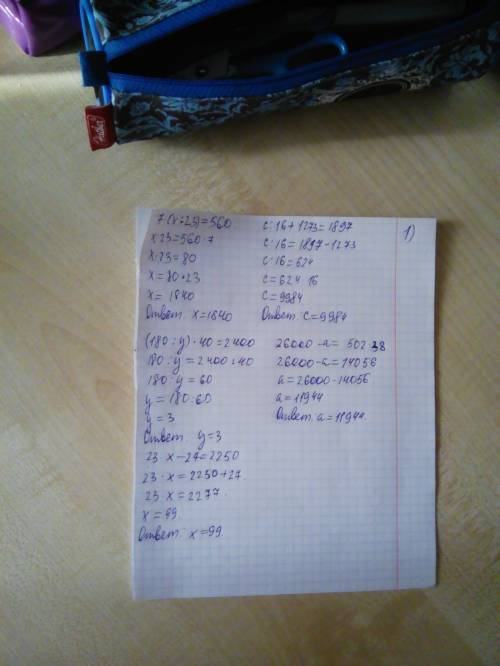 1)
7(x:23)=560
x:23=560:7
x:23=80
x=80·23
x=1840
Ответ: x=1840
(180:y)·40=2400
180:y=2400:40
180:y=60
y=180:60
y=3
Ответ: y=3
23·x-27=2250
23·x=2250+27
23·x=2277
x=99
Ответ: x=99
c:16+1273=1897
c:16=1897-1273
c:16=624
c=624·16
c=9984
Ответ: c=9984
26000-a=502 38
26000-a=14056
a=26000-14056
a=11944
Ответ: a=11944